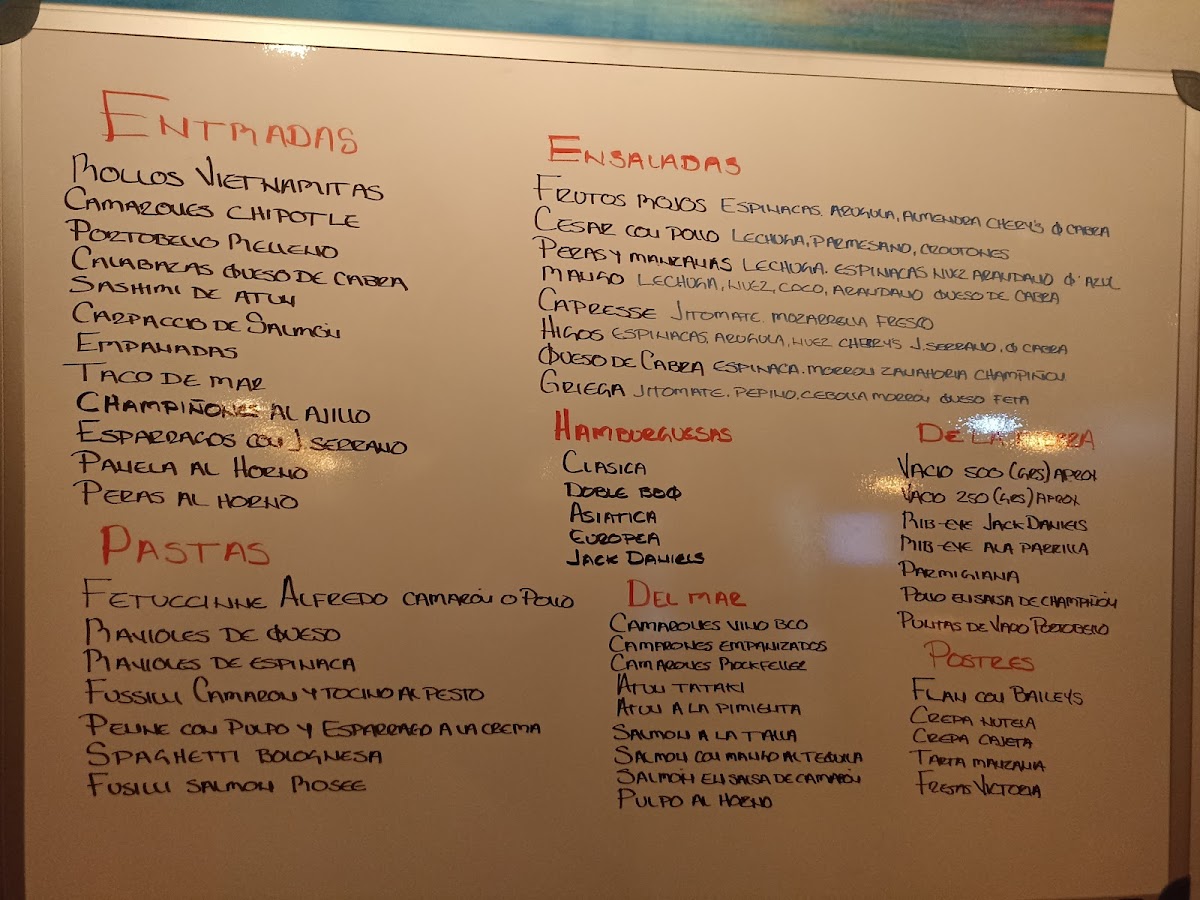 ENTRADAS
ROLLOS VIETNAMITAS
CAMARONES CHIPOTLE
PORTOBELLO RELLENO
CALABAZAS QUESO DE CABRA
SASHIMI DE ATUN
CARPACCIO DE SALMÓN
EMPANADAS
TACO DE MAR
CHAMPIÑONES AL AJILLO
ESPARRAGOS CON J. SERRANO
PANELA AL HORNO
PERAS AL HORNO
PASTAS
FETUCCINNE ALFREDO CAMARÓN O POLLO
RAVIOLES DE QUESO
RAVIOLES DE ESPINACA
FUSSILLI CAMARON Y TOCINO AL PESTO
PENNE CON PULPO Y ESPARRAGO A LA CREMA
SPAGHETTI BOLOGNESA
FUSILLI SALMON ROSEE
ENSALADAS
FRUTOS ROJOS ESPINACAS. ARUGULA, ALMENDRA CHERY'S Q CABRA
CESAR CON POLLO LECHUGA, PARMESANO, CROOTONES
PERAS Y MANZANAS LECHUGA. ESPINACAS NUEZ ARANDANO Q' AZUL
MANGO LECHUGA, NUEZ, COCO, ARANDANO QUESO DE CABRA
CAPRESSE JITOMATE. MOZARRELLA FRESCO
HIGOS ESPINACAS. ARUGULA, NUEZ CHERRY'S J. SERRANO, Q CABRA
QUESO DE CABRA ESPINACA. MORRON ZANAHORIA CHAMPIÑON
GRIEGA JITOMATE. PEPINO, CEBOLLA MORRON QUESO FETA
HAMBURGUESAS
CLASICA
DOBLE BBQ
ASIATICA
EUROPEA
JACK DANIELS
DEL MAR
CAMARONES VINO BCO
CAMARONES EMPANIZADOS
CAMARONES ROCKFELLER
ATUN TATAKI
ATUN A LA PIMIENTA
SALMON A LA TALLA
SALMON CON MANGO AL TEQUILA
SALMÓN EN SALSA DE CAMARÓN
PULPO AL HORNO
DE LA
VACIO 500 (GRS) APROX
VACIO 250 (GRS) APROX
RIB-EYE JACK DANIELS
RIB-EYE A LA PARRILLA
PARMIGIANA
POLLO EN SALSA DE CHAMPIÑÓN
PUNTAS DE VACIO PORTOBELO
POSTRES
FLAN CON BAILEYS
CREPA NUTELA
CREPA CAJETA
TARTA MANZANA
FRESAS VICTORIA